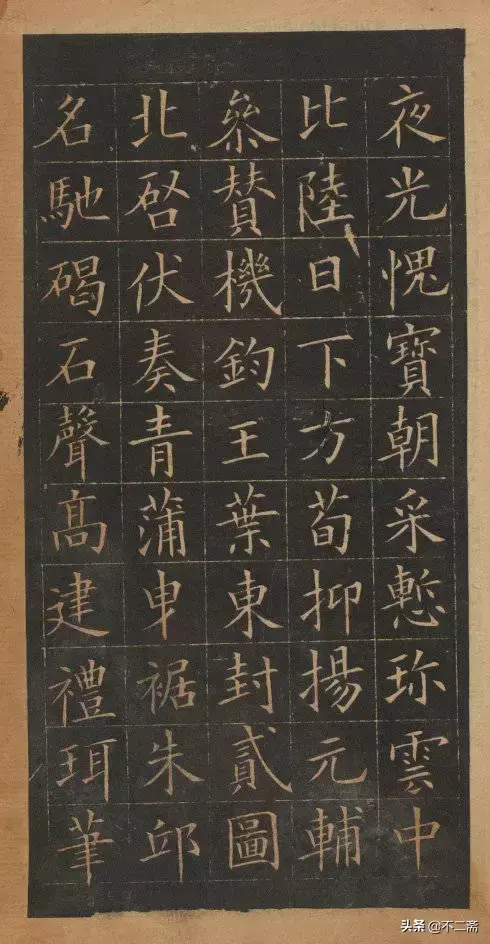 夜光愧寶朝采慙珎雲中
比陸日下方荀抑揚元輔
叅賛機鈞王葉東封貳圖
北啓伏奏青蒲曳裾朱邱
名馳碣石聲髙建禮珥筆
头条 @不二斋